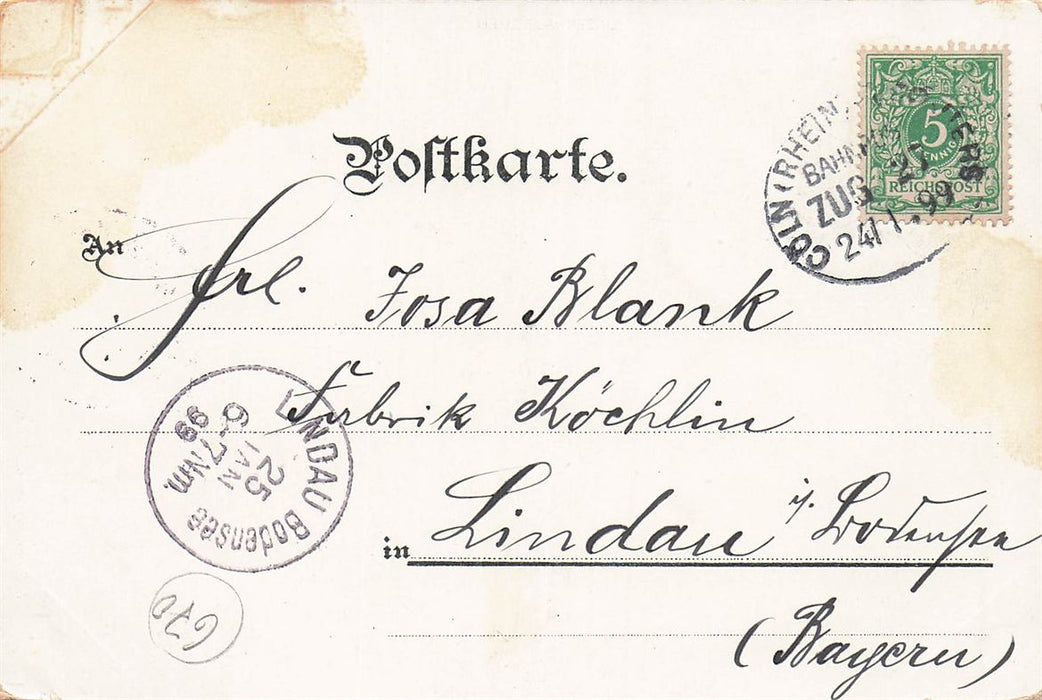 Postkarte.
5
PFENNIG
REICHSPOST
CÖLN (RHEIN)
BAHNPOST
ZUG 25
24/1.99
An
Frl. Josa Blank
Fabrik Köchlin
in Lindau i/Bodensee
(Bayern)
LINDAU Bodensee
25
JAN
6-7Nm.
99
670